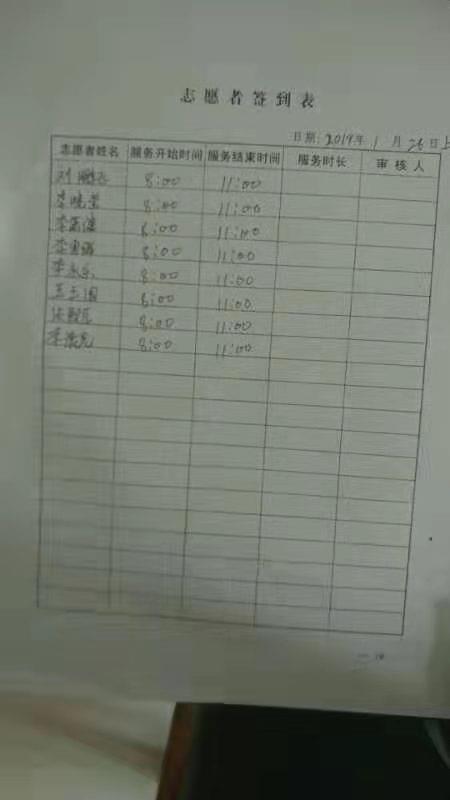 志愿者签到表
日期：2019年1月26日上
志愿者姓名 服务开始时间 服务结束时间 服务时长 审核人
刘鹏飞 8:00 11:00
李晓莹 8:00 11:00
李 8:00 11:00
李 8:00 11:00
李永乐 8:00 11:00
王玉国 8:00 11:00
8:00 11:00
李 8:00 11:00